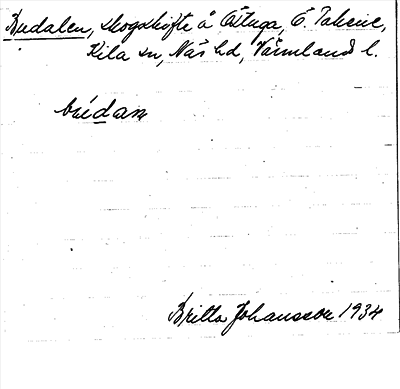 Budalen, skogsskifte å Östuga, Ö. Takene,
Kila sn, Näs hd, Värmlands l.
bú̀dan
Britta Johansson 1934